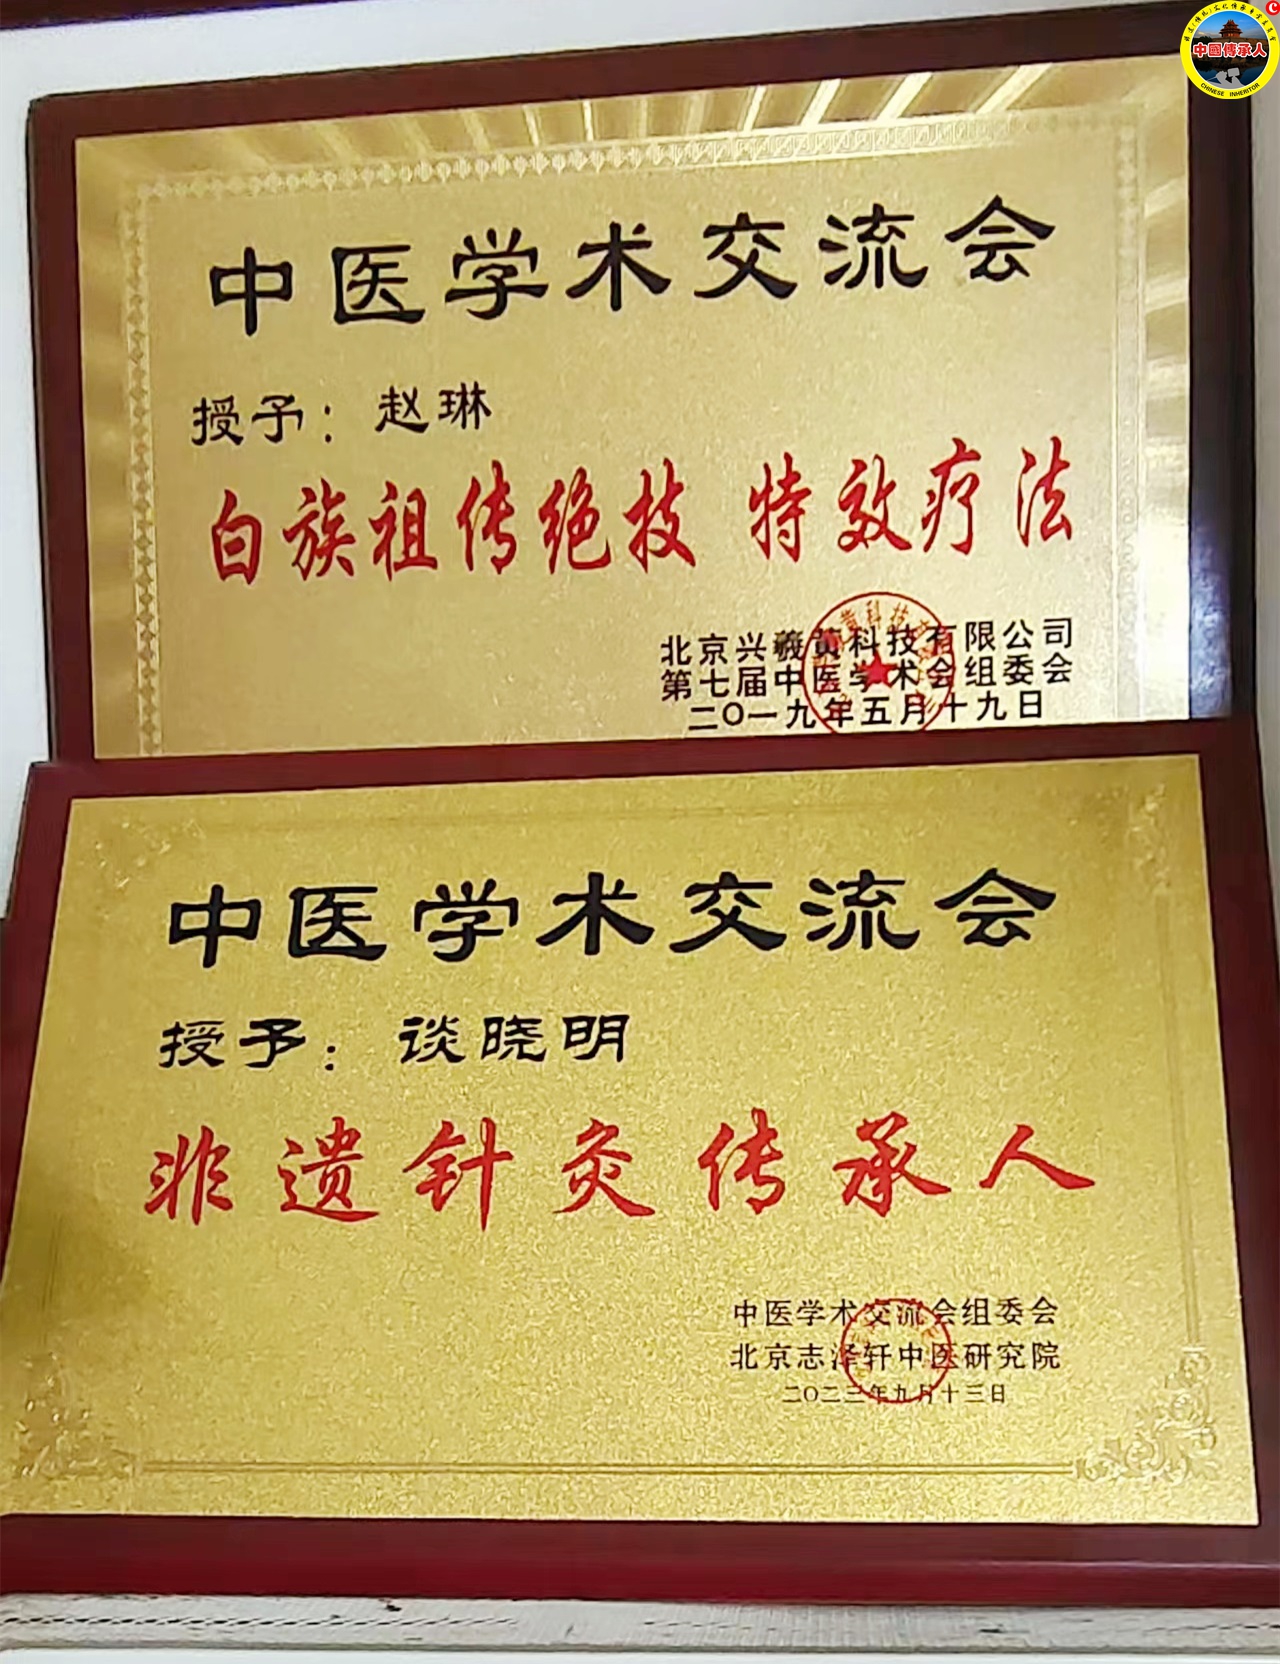 中國傳承人
CHINESE INHERITOR
中医学术交流会
授予：赵琳
白族祖传绝技 特效疗法
北京兴羲黄科技有限公司
第七届中医学术会组委会
二〇一九年五月十九日
中医学术交流会
授予：谈晓明
非遗针灸传承人
中医学术交流会组委会
北京志泽轩中医研究院
二〇二三年九月十三日